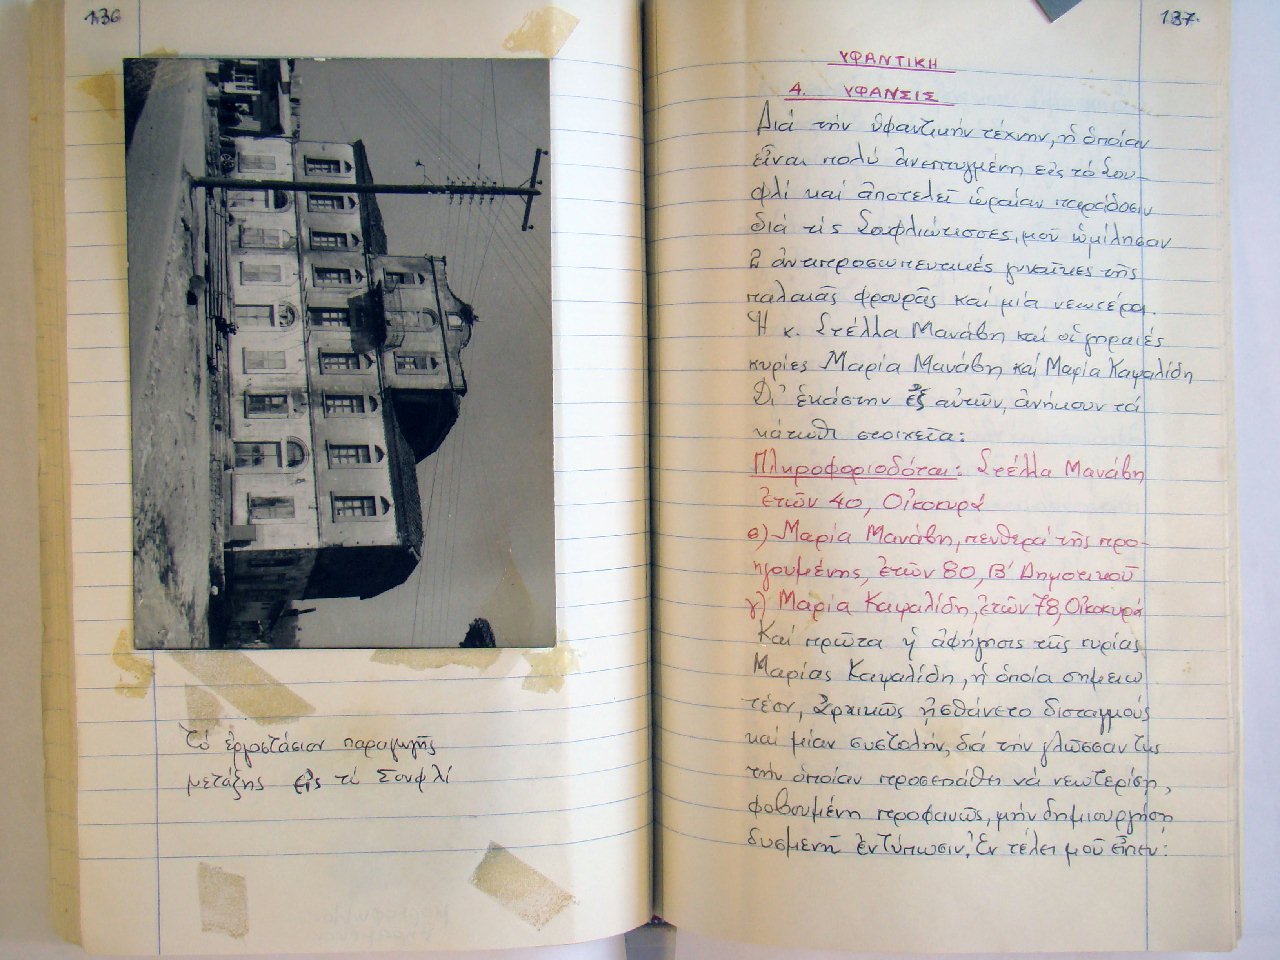 136
Τό ἐργοστάσιον παραγωγῆς
μετάξης εἰς τό Σουφλί
137
ΥΦΑΝΤΙΚΗ
4. ΥΦΑΝΣΙΣ
Διά τήν ὑφαντικήν τέχνην, ἡ ὁποίαν
εἶναι πολύ ἀνεπτυγμένη εἰς τό Σου-
φλί καί ἀποτελεῖ ὡραίαν παράδοσιν
διά τίς Σουφλιώτισσες, μοῦ ὡμίλησαν
2 ἀντιπροσωπευτικές γυναῖκες τῆς
παλαιᾶς φρουρᾶς καί μία νεωτέρα.
Ἡ κ. Στέλλα Μανάβη καί οἱ γηραιές
κυρίες Μαρία Μανάβη καί Μαρία Καψαλίδη
Δι' ἑκάστην ἐξ αὐτῶν, ἀνήκουν τά
κάτωθι στοιχεῖα:
Πληροφοριοδόται: Στέλλα Μανάβη
ἐτῶν 40, Οἰκοκυρά
β) Μαρία Μανάβη, πενθερά τῆς προ-
ηγουμένης, ἐτῶν 80, Β' Δημοτικοῦ
γ) Μαρία Καψαλίδη, ἐτῶν 78, Οἰκοκυρά
Καί πρῶτα ἡ ἀφήγησις τῆς κυρίας
Μαρίας Καψαλίδη, ἡ ὁποία σημειω
τέον, ἀρχικῶς ᾐσθάνετο δισταγμούς
καί μίαν συστολήν, διά τήν γλῶσσαν της
τήν ὁποίαν προσεπάθη νά νεωτερίση,
φοβουμένη προφανῶς, μήν δημιουργήση
δυσμενῆ ἐντύπωσιν. Ἐν τέλει μοῦ εἶπεν: